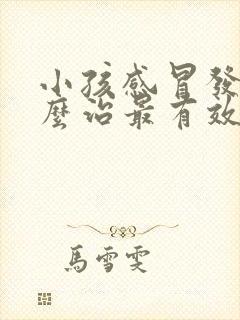 小孩感冒發
麼治最有效
馬雪雯